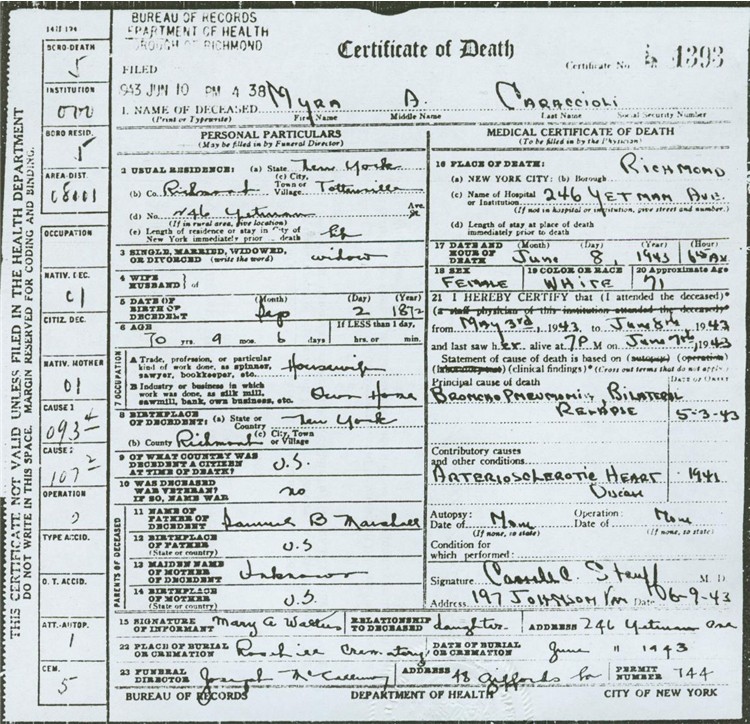 BUREAU OF RECORDS
DEPARTMENT OF HEALTH
BOROUGH OF RICHMOND
Certificate of Death
Certificate No. 1393
FILED
1943 JUN 10 PM 4 38
1. NAME OF DECEASED Myra A. Caraccioli
(Print or Typewrite) First Name Middle Name Last Name Social Security Number
PERSONAL PARTICULARS
(May be filled in by Funeral Director)
2 USUAL RESIDENCE: (a) State New York
(b) Co. Richmond (c) City, Town or Village Tottenville
(d) No. 246 Yetman Ave. St.
(If in rural area, give location)
(e) Length of residence or stay in City of New York immediately prior to death
3 SINGLE, MARRIED, WIDOWED, OR DIVORCED (write the word) widow
4 WIFE HUSBAND } of
5 DATE OF BIRTH OF DECEDENT (Month) (Day) 2 (Year) 1872
6 AGE 70 yrs. 9 mos. 6 days If LESS than 1 day, hrs. or min.
7 OCCUPATION
A Trade, profession, or particular kind of work done, as spinner, sawyer, bookkeeper, etc. Housewife
B Industry or business in which work was done, as silk mill, sawmill, bank, own business, etc. Own Home
8 BIRTHPLACE OF DECEDENT: (a) State or Country New York
(b) County Richmond (c) City, Town or Village
9 OF WHAT COUNTRY WAS DECEDENT A CITIZEN AT TIME OF DEATH? U.S.
10 WAS DECEASED WAR VETERAN? IF SO, NAME WAR no
PARENTS OF DECEASED
11 NAME OF FATHER OF DECEDENT Samuel B Marshall
12 BIRTHPLACE OF FATHER (State or country) U.S
13 MAIDEN NAME OF MOTHER OF DECEDENT Unknown
14 BIRTHPLACE OF MOTHER (State or country) U.S.
MEDICAL CERTIFICATE OF DEATH
(To be filled in by the Physician)
16 PLACE OF DEATH:
(a) NEW YORK CITY: (b) Borough Richmond
(c) Name of Hospital or Institution 246 Yetman Ave.
(If not in hospital or institution, give street and number.)
(d) Length of stay at place of death immediately prior to death
17 DATE AND HOUR OF DEATH (Month) June (Day) 8, (Year) 1943 (Hour)
18 SEX Female 19 COLOR OR RACE White 20 Approximate Age 71
21 I HEREBY CERTIFY that (I attended the deceased)*
(a staff physician of this institution attended the deceased)*
from May 3rd, 1943 to June 8th, 1943
and last saw her alive at 7P M on June 7th, 1943
Statement of cause of death is based on (autopsy) (operation) (laboratory test) (clinical findings)* (Cross out terms that do not apply.)
Principal cause of death DATE OF ONSET
Bronchopneumonia, Bilateral 5-3-43
Contributory causes and other conditions
Arteriosclerotic Heart 1941
Autopsy: Date of None (If none, so state)
Operation: Date of None (If none, so state)
Condition for which performed:
Signature M. D.
Address 197 Johnson Date 06-9-43
15 SIGNATURE OF INFORMANT Mary A Walters RELATIONSHIP TO DECEASED daughter ADDRESS 246 Yetman Ave
22 PLACE OF BURIAL OR CREMATION Rosehill Crematory DATE OF BURIAL OR CREMATION June 11 1943
23 FUNERAL DIRECTOR Joseph ADDRESS 48 Giffords PERMIT NUMBER 744
BUREAU OF RECORDS DEPARTMENT OF HEALTH CITY OF NEW YORK
THIS CERTIFICATE NOT VALID UNLESS FILED IN THE HEALTH DEPARTMENT
DO NOT WRITE IN THIS SPACE. MARGIN RESERVED FOR CODING AND BINDING.
BORO-DEATH
5
INSTITUTION
BORO RESID.
5
AREA-DIST.
OCCUPATION
NATIV. DEC.
C1
CITIZ. DEC.
NATIV. MOTHER
01
CAUSE 1
093
CAUSE 2
107
OPERATION
TYPE ACCID.
O. T. ACCID.
ATT.-AUTOP.
1
CEM.
5